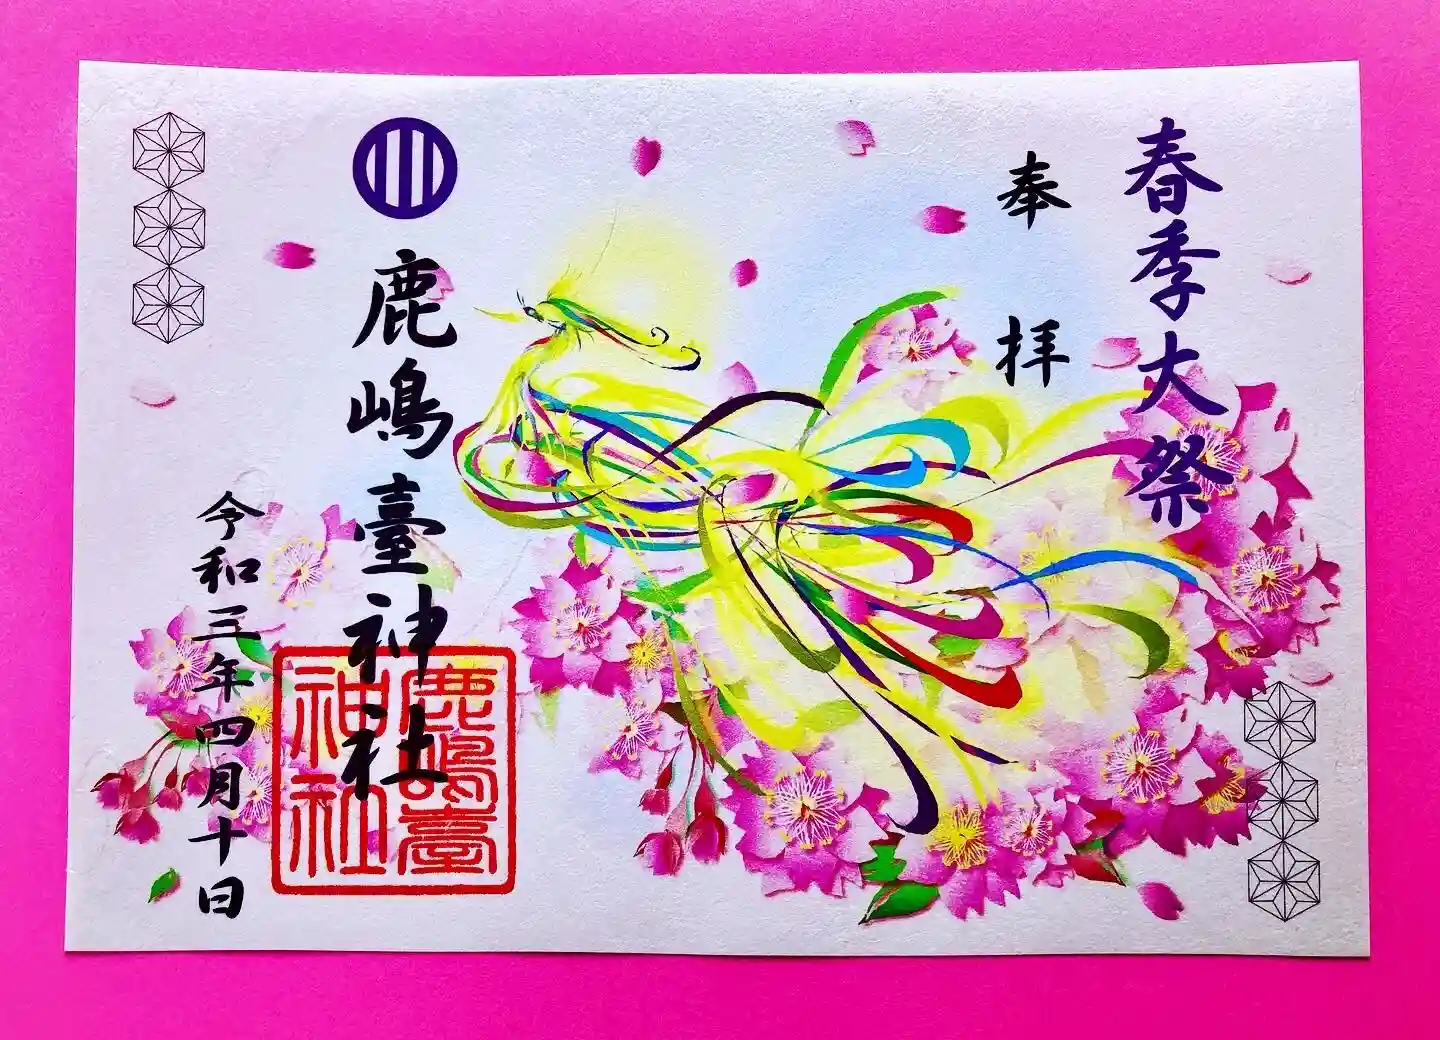 春季大祭
奉拝
鹿嶋臺神社
鹿嶋臺
神社
令和三年四月十日